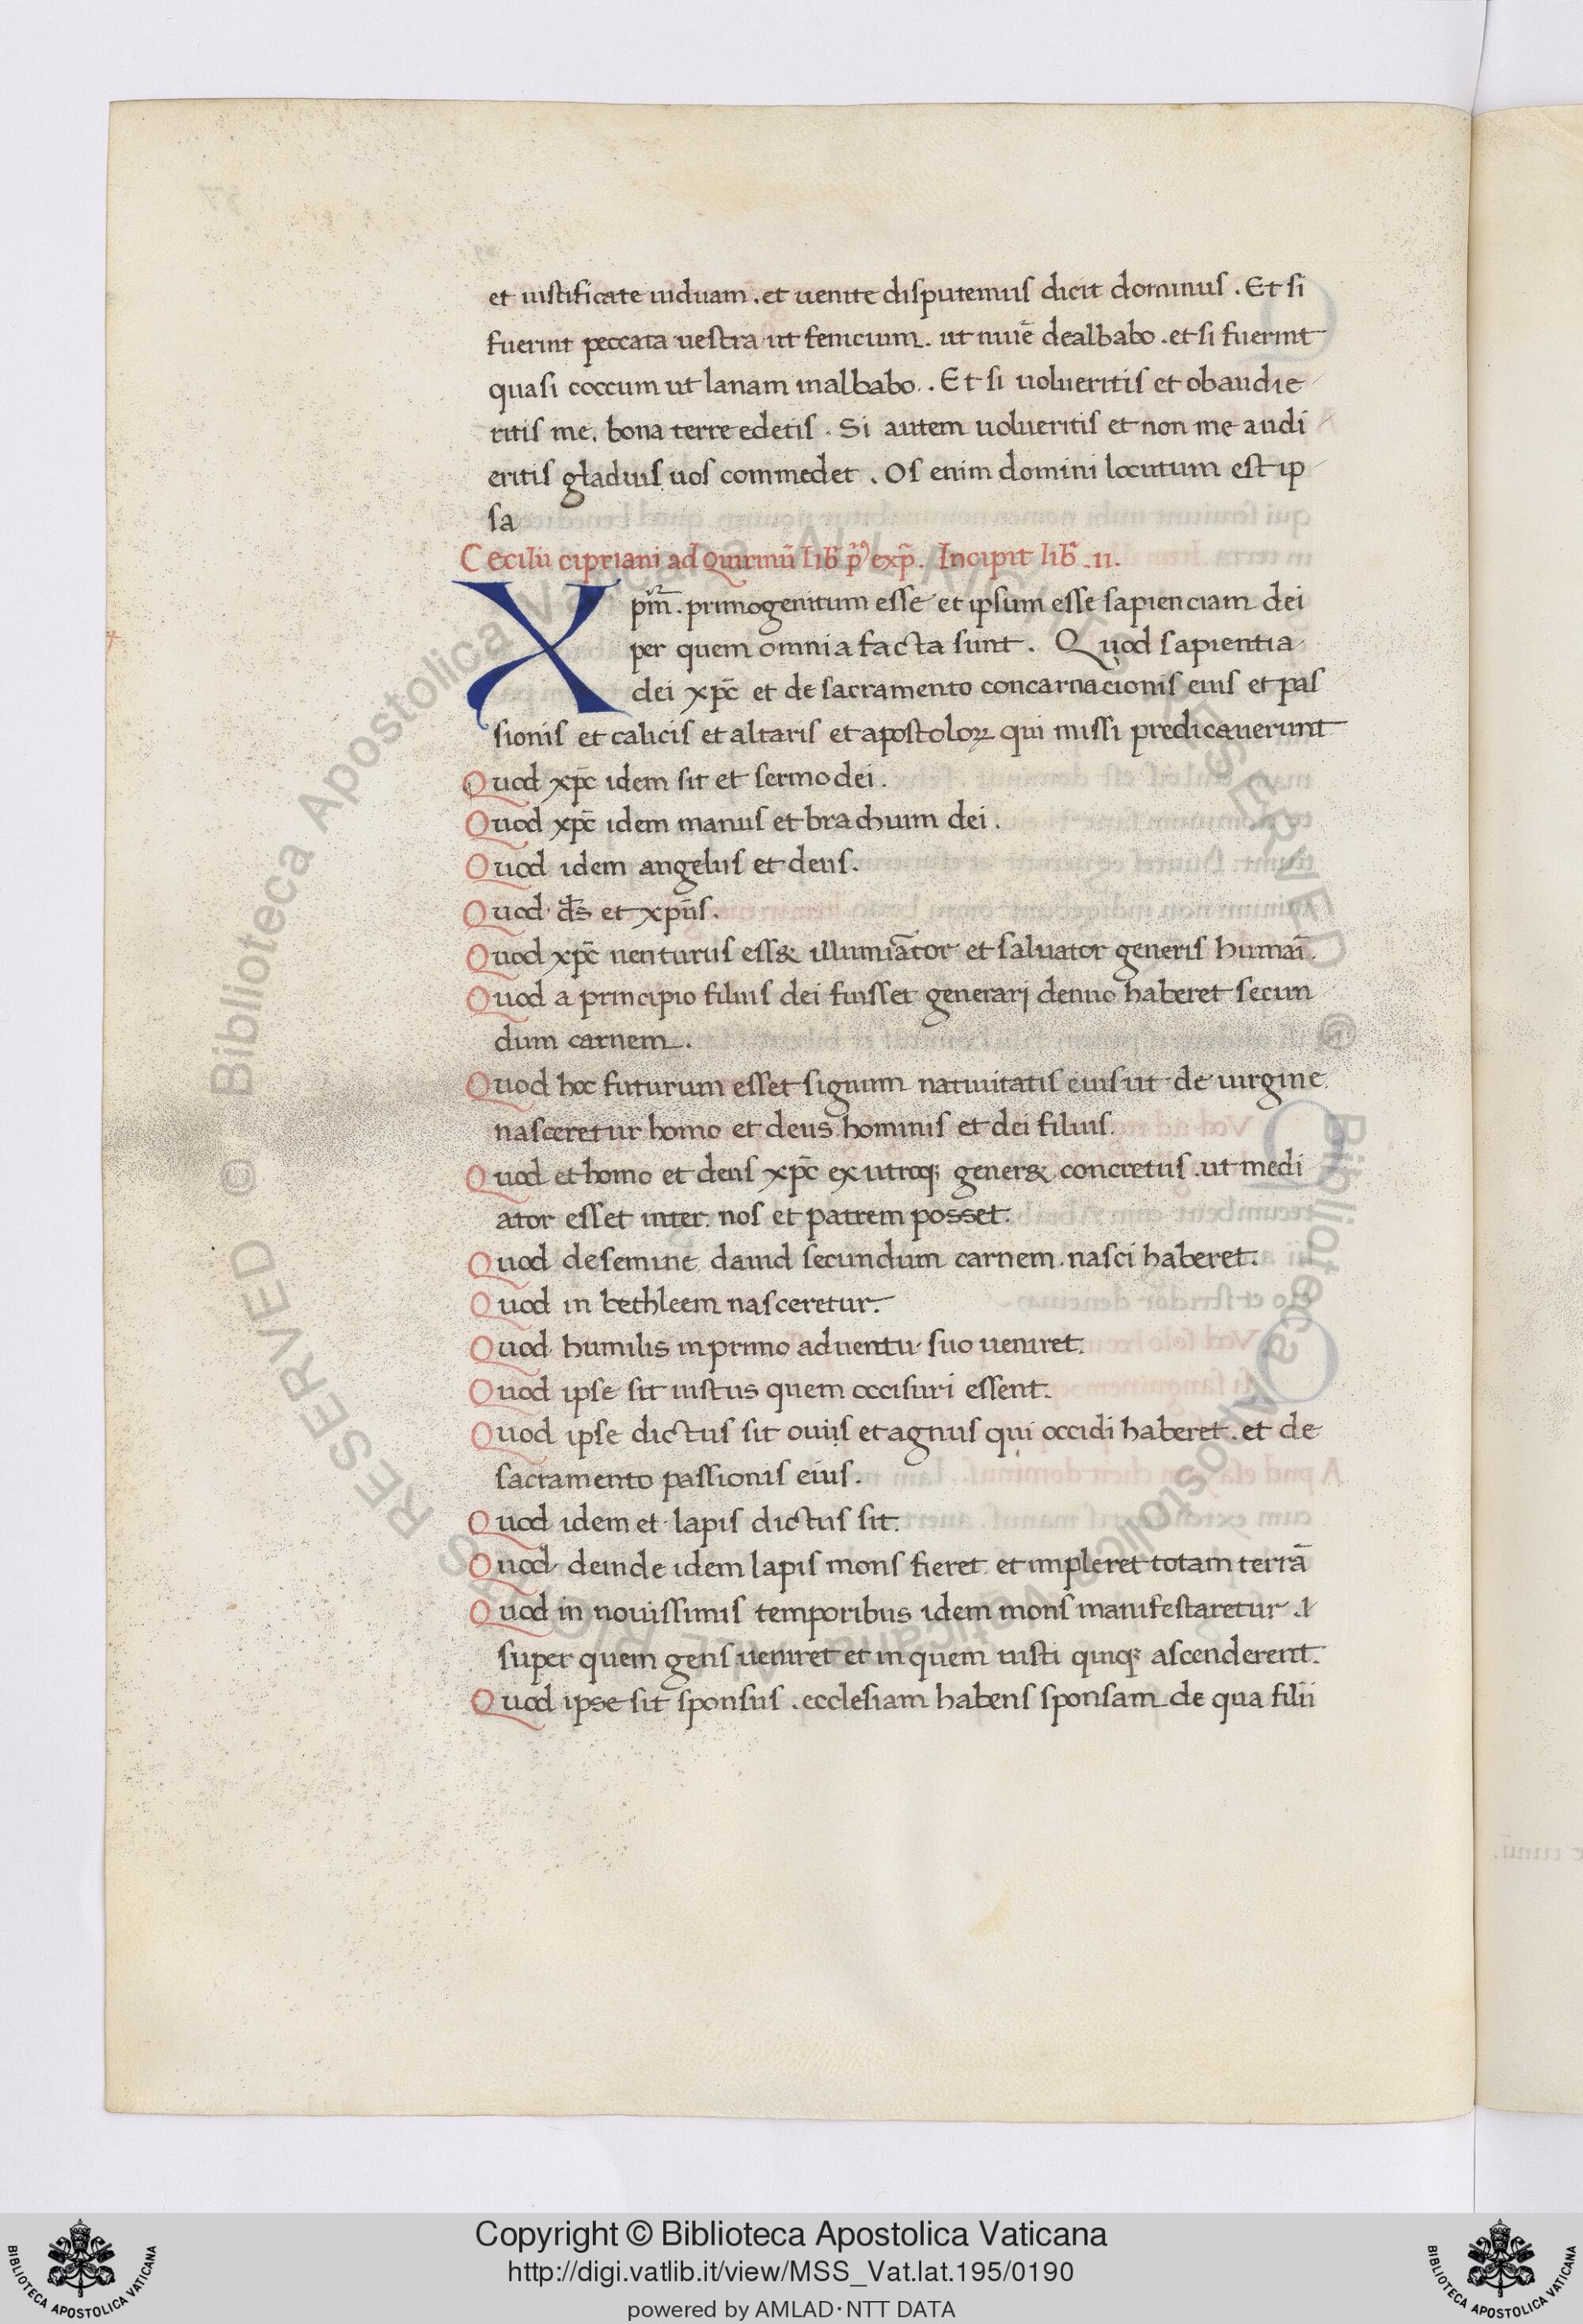 et iustificate uiduam . et uenite disputemus dicit dominus . Et si
fuerint peccata uestra ut fenicium . ut niuē dealbabo . et si fuerint
quasi coccum ut lanam inalbabo . . Et si uolueritis et obaudie
ritis me . bona terre edetis . Si autem uolueritis et non me audi
eritis gladius uos commedet . Os enim domini locutum est ip
sa
Cecilii cipriani ad Quirinū Lib̄ p̄⁹ exp̄ . Incipit lib̄ .II.
Xpm̄ . primogenitum esse et ipsum esse sapienciam dei
per quem omnia facta sunt . Quod sapientia
dei xpc̄ et de sacramento concarnacionis eius et pas
sionis et calicis et altaris et apostoloꝝ qui missi predicauerunt
Quod xpc̄ idem sit et sermo dei .
Quod xpc̄ idem manus et brachium dei .
Quod idem angelus et deus .
Quod ds̄ et xpūs .
Quod xpc̄ uenturus ess& illumiātor et saluator generis humaī .
Quod a principio filius dei fuisset generari denuo haberet secun
dum carnem .
Quod hoc futurum esset signum natiuitatis eius ut de uirgine
nasceretur homo et deus hominis et dei filius .
Quod et homo et deus xpc̄ ex utroqꝫ gener& concretus . ut medi
ator esset inter nos et patrem posset .
Quod de semine dauid secundum carnem nasci haberet .
Quod in bethleem nasceretur .
Quod humilis in primo aduentu suo ueniret .
Quod ipse sit iustus quem occisuri essent .
Quod ipse dictus sit ouis et agnus qui occidi haberet . et de
sacramento passionis eius .
Quod idem et lapis dictus sit .
Quod deinde idem lapis mons fieret et impleret totam terrā
Quod in nouissimis temporibus idem mons manifestaretur .
super quem gens ueniret et in quem iusti quiqꝫ ascenderent .
Quod ipse sit sponsus . ecclesiam habens sponsam de qua filii
© Biblioteca Apostolica Vaticana ALL RIGHTS RESERVED
© Biblioteca Apostolica Vaticana ALL RIGHTS RESERVED
Copyright © Biblioteca Apostolica Vaticana
http://digi.vatlib.it/view/MSS_Vat.lat.195/0190
powered by AMLAD·NTT DATA
BIBLIOTECA APOSTOLICA VATICANA
BIBLIOTECA APOSTOLICA VATICANA